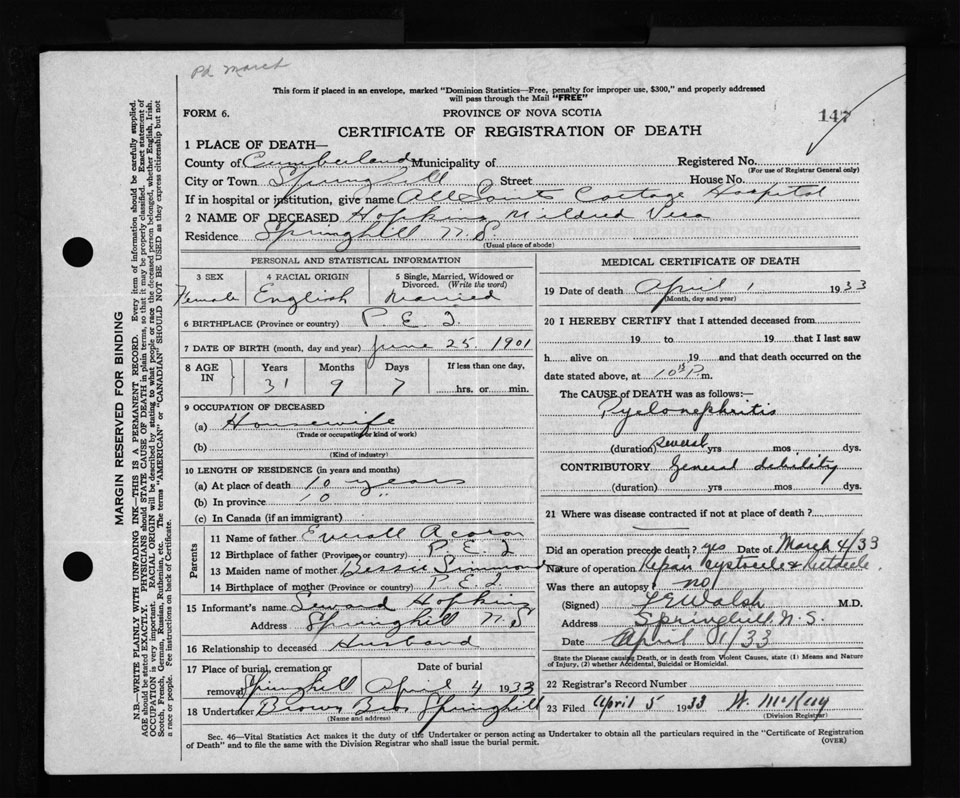 Pd March
This form if placed in an envelope, marked "Dominion Statistics—Free, penalty for improper use, $300," and properly addressed
will pass through the Mail "FREE"
FORM 6.
PROVINCE OF NOVA SCOTIA
147
CERTIFICATE OF REGISTRATION OF DEATH
MARGIN RESERVED FOR BINDING
N.B.—WRITE PLAINLY WITH UNFADING INK—THIS IS A PERMANENT RECORD. Every item of information should be carefully supplied.
AGE should be stated EXACTLY. PHYSICIANS should STATE CAUSE OF DEATH in plain terms, so that it may be properly classified. Exact statement of
OCCUPATION is very important. RACIAL ORIGIN will be described by stating to what people or race the deceased person belonged, whether English, Irish,
Scotch, French, German, Russian, Ruthenian, etc. The terms "AMERICAN" or "CANADIAN" SHOULD NOT BE USED as they express citizenship but not
a race or people. Fee instructions on back of Certificate.
1 PLACE OF DEATH—
County of Cumberland Municipality of Registered No.
(For use of Registrar General only)
City or Town Springhill Street House No.
If in hospital or institution, give name All Saints Cottage Hospital
2 NAME OF DECEASED Hopkins Mildred Vera
Residence Springhill N.S.
(Usual place of abode)
PERSONAL AND STATISTICAL INFORMATION
3 SEX 4 RACIAL ORIGIN 5 Single, Married, Widowed or Divorced. (Write the word)
Female English Married
6 BIRTHPLACE (Province or country) P.E.I.
7 DATE OF BIRTH (month, day and year) June 25. 1901
8 AGE IN Years Months Days If less than one day,
31 9 7 hrs. or min.
9 OCCUPATION OF DECEASED
(a) Housewife
(Trade or occupation or kind of work)
(b)
(Kind of industry)
10 LENGTH OF RESIDENCE (in years and months)
(a) At place of death 10 years
(b) In province 10 "
(c) In Canada (if an immigrant)
Parents
11 Name of father Everett Acorn
12 Birthplace of father (Province or country) P.E.I
13 Maiden name of mother Bessie Simmons
14 Birthplace of mother (Province or country) P.E.I
15 Informant's name Seward Hopkins
Address Springhill N.S
16 Relationship to deceased Husband
17 Place of burial, cremation or removal Date of burial
Springhill April 4 1933
18 Undertaker Brown Bros Springhill
(Name and address)
MEDICAL CERTIFICATE OF DEATH
19 Date of death April 1 1933
(Month, day and year)
20 I HEREBY CERTIFY that I attended deceased from
19 to 19 that I last saw
h alive on 19 and that death occurred on the
date stated above, at 10 P.m.
The CAUSE OF DEATH was as follows:—
Pyelonephritis
(duration) several yrs mos dys.
CONTRIBUTORY General debility
(duration) yrs mos dys.
21 Where was disease contracted if not at place of death?
Did an operation precede death? yes Date of March 4/33
Nature of operation Repair Cystocele & Rectocele
Was there an autopsy? no
(Signed) Walsh M.D.
Address Springhill N.S.
Date April 1/33
State the Disease causing Death, or in death from Violent Causes, state (1) Means and Nature
of Injury, (2) whether Accidental, Suicidal or Homicidal.
22 Registrar's Record Number
23 Filed April 5 1933 W. McKay
(Division Registrar)
Sec. 46—Vital Statistics Act makes it the duty of the Undertaker or person acting as Undertaker to obtain all the particulars required in the "Certificate of Registration
of Death" and to file the same with the Division Registrar who shall issue the burial permit.
(OVER)